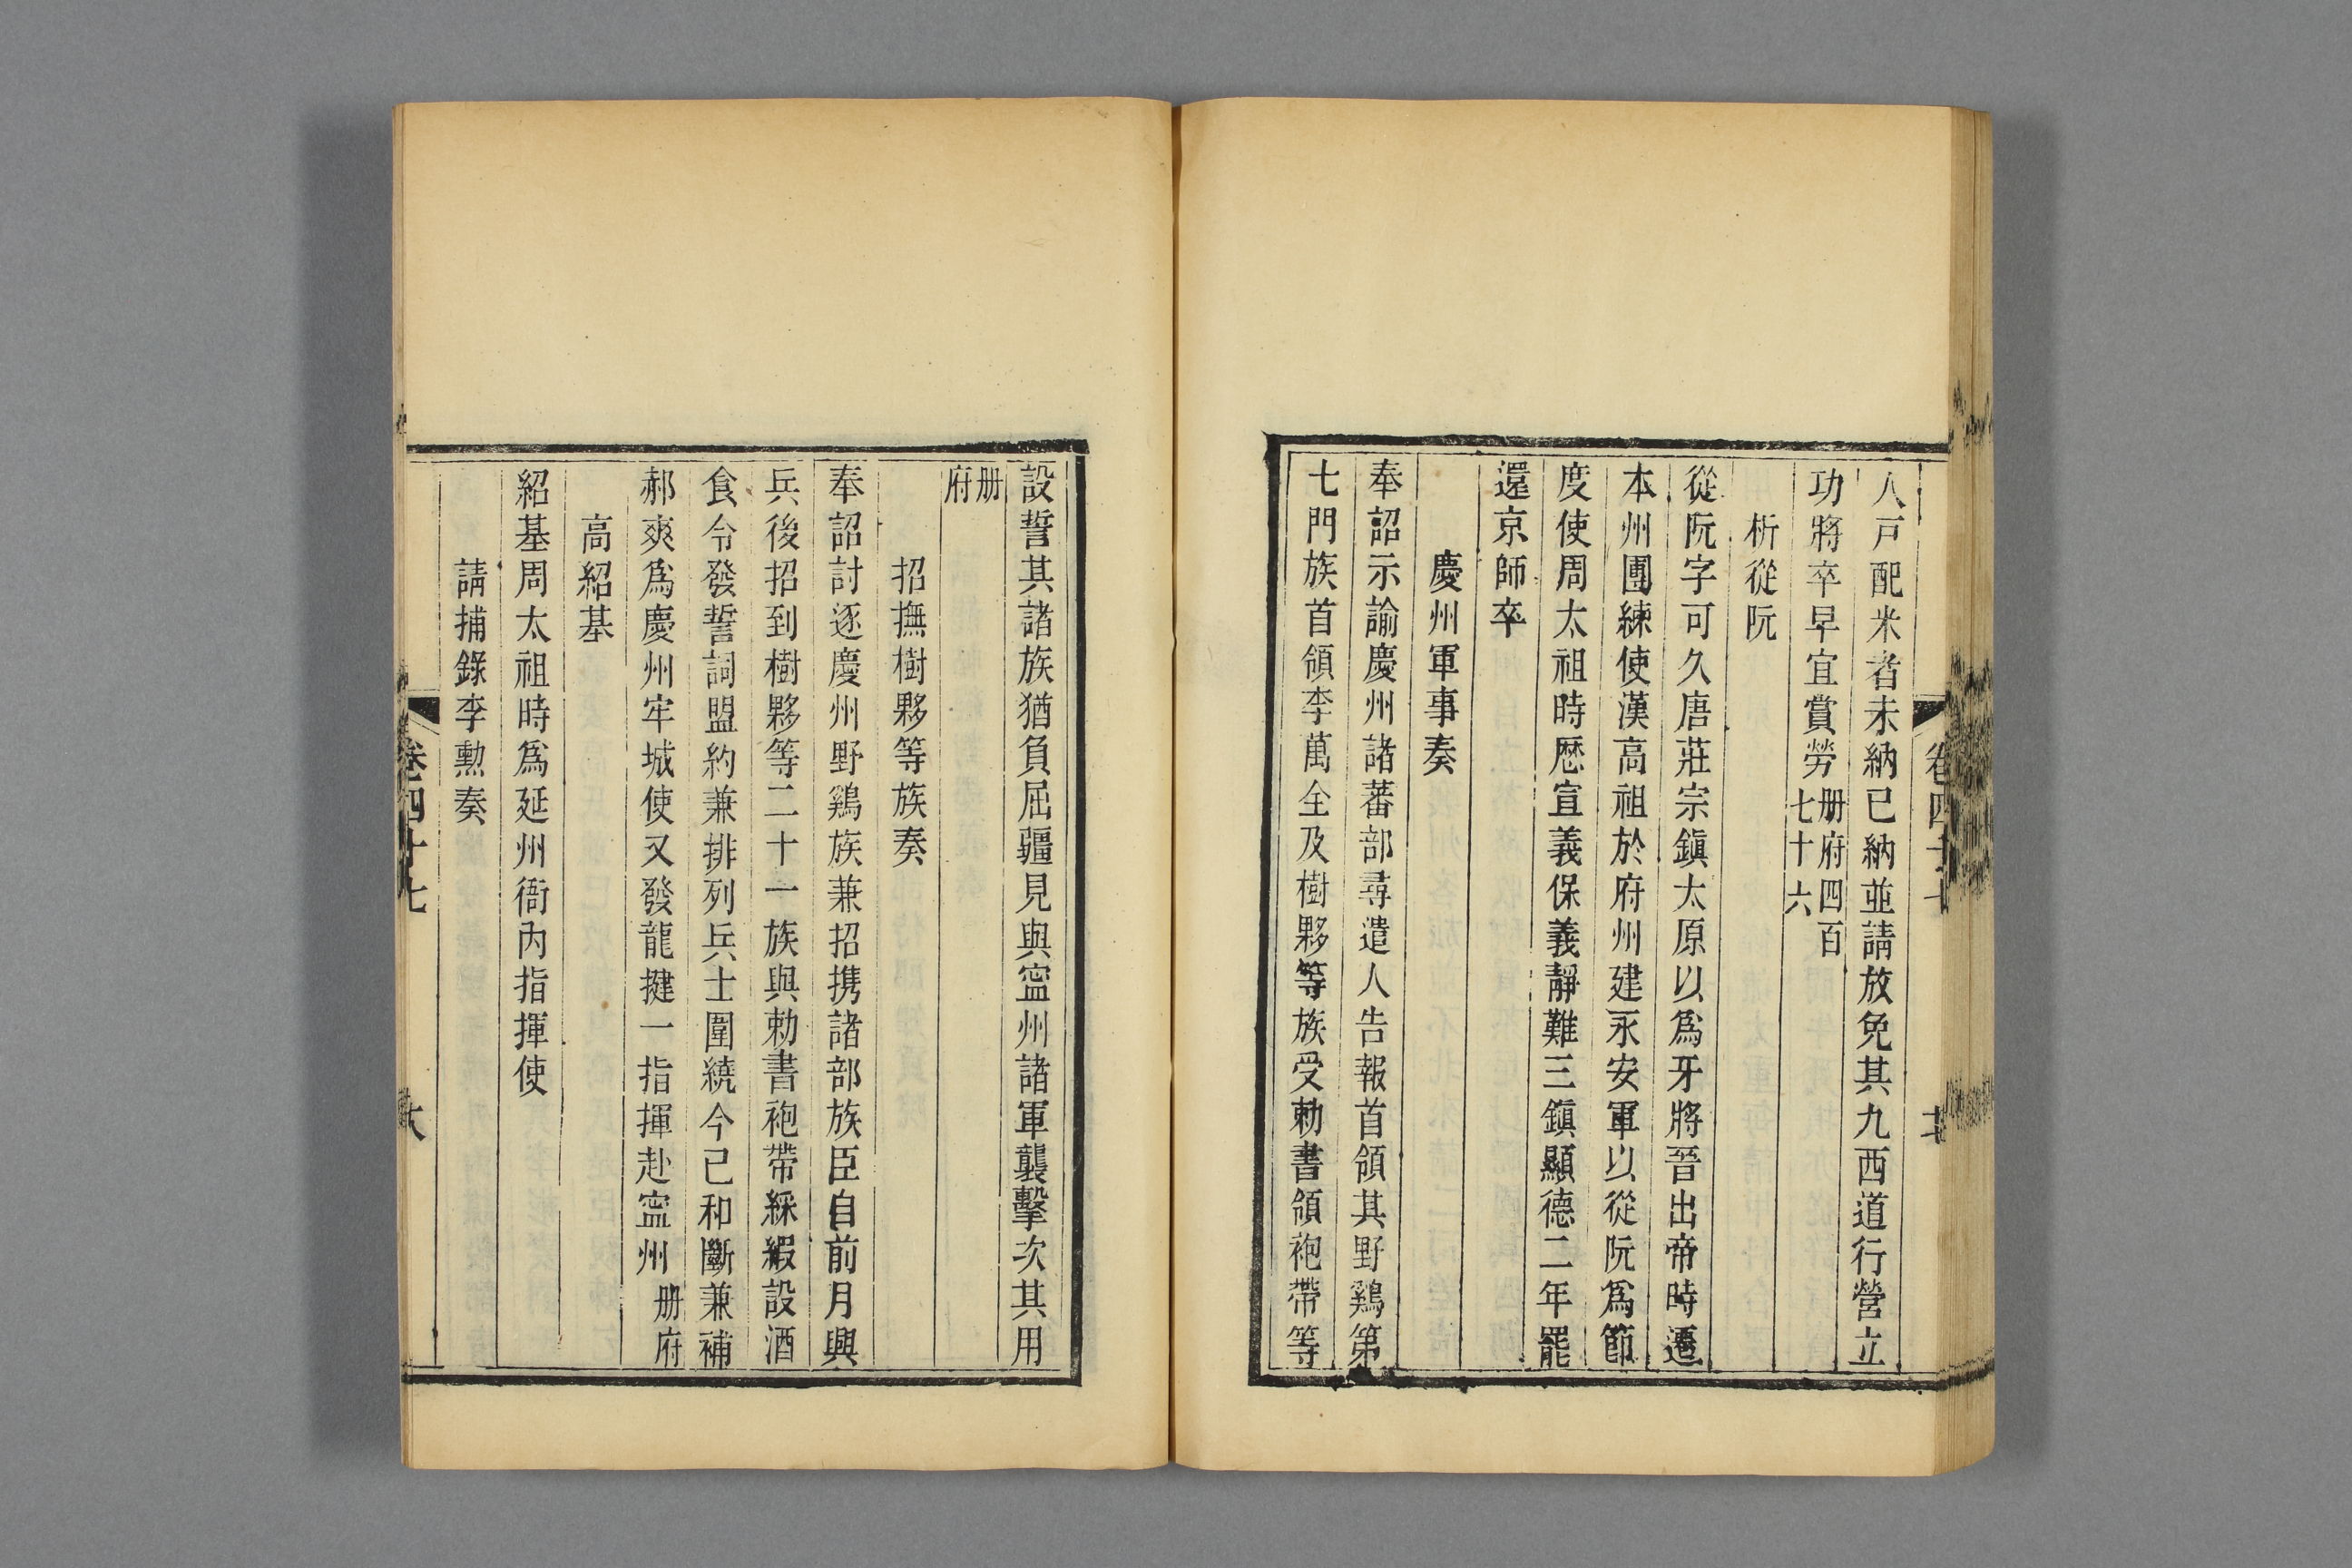 人戸配米者未納已納並請放免其九西道行營立
功將卒早宜賞勞册府四百七十六
析從阮
從阮字可久唐莊宗鎭太原以爲牙將晉出帝時遷
本州團練使漢高祖於府州建永安軍以從阮爲節
度使周太祖時歴宣義保義靜難三鎭顯德二年罷
還京師卒
慶州軍事奏
奉詔示諭慶州諸蕃部尋遣人告報首領其野鷄第
七門族首領李萬全及樹夥等族受勅書領袍帶等
設誓其諸族猶負屈疆見與寍州諸軍襲擊次其用
册府
招撫樹夥等族奏
奉詔討逐慶州野鷄族兼招携諸部族臣自前月興
兵後招到樹夥等二十一族與勅書袍帶綵緞設酒
食令發誓詞盟約兼排列兵士圍繞今已和斷兼補
郝爽爲慶州牢城使又發龍揵一指揮赴寍州册府
高紹基
紹基周太祖時爲延州衙內指揮使
請捕錄李勲奏
卷四十七